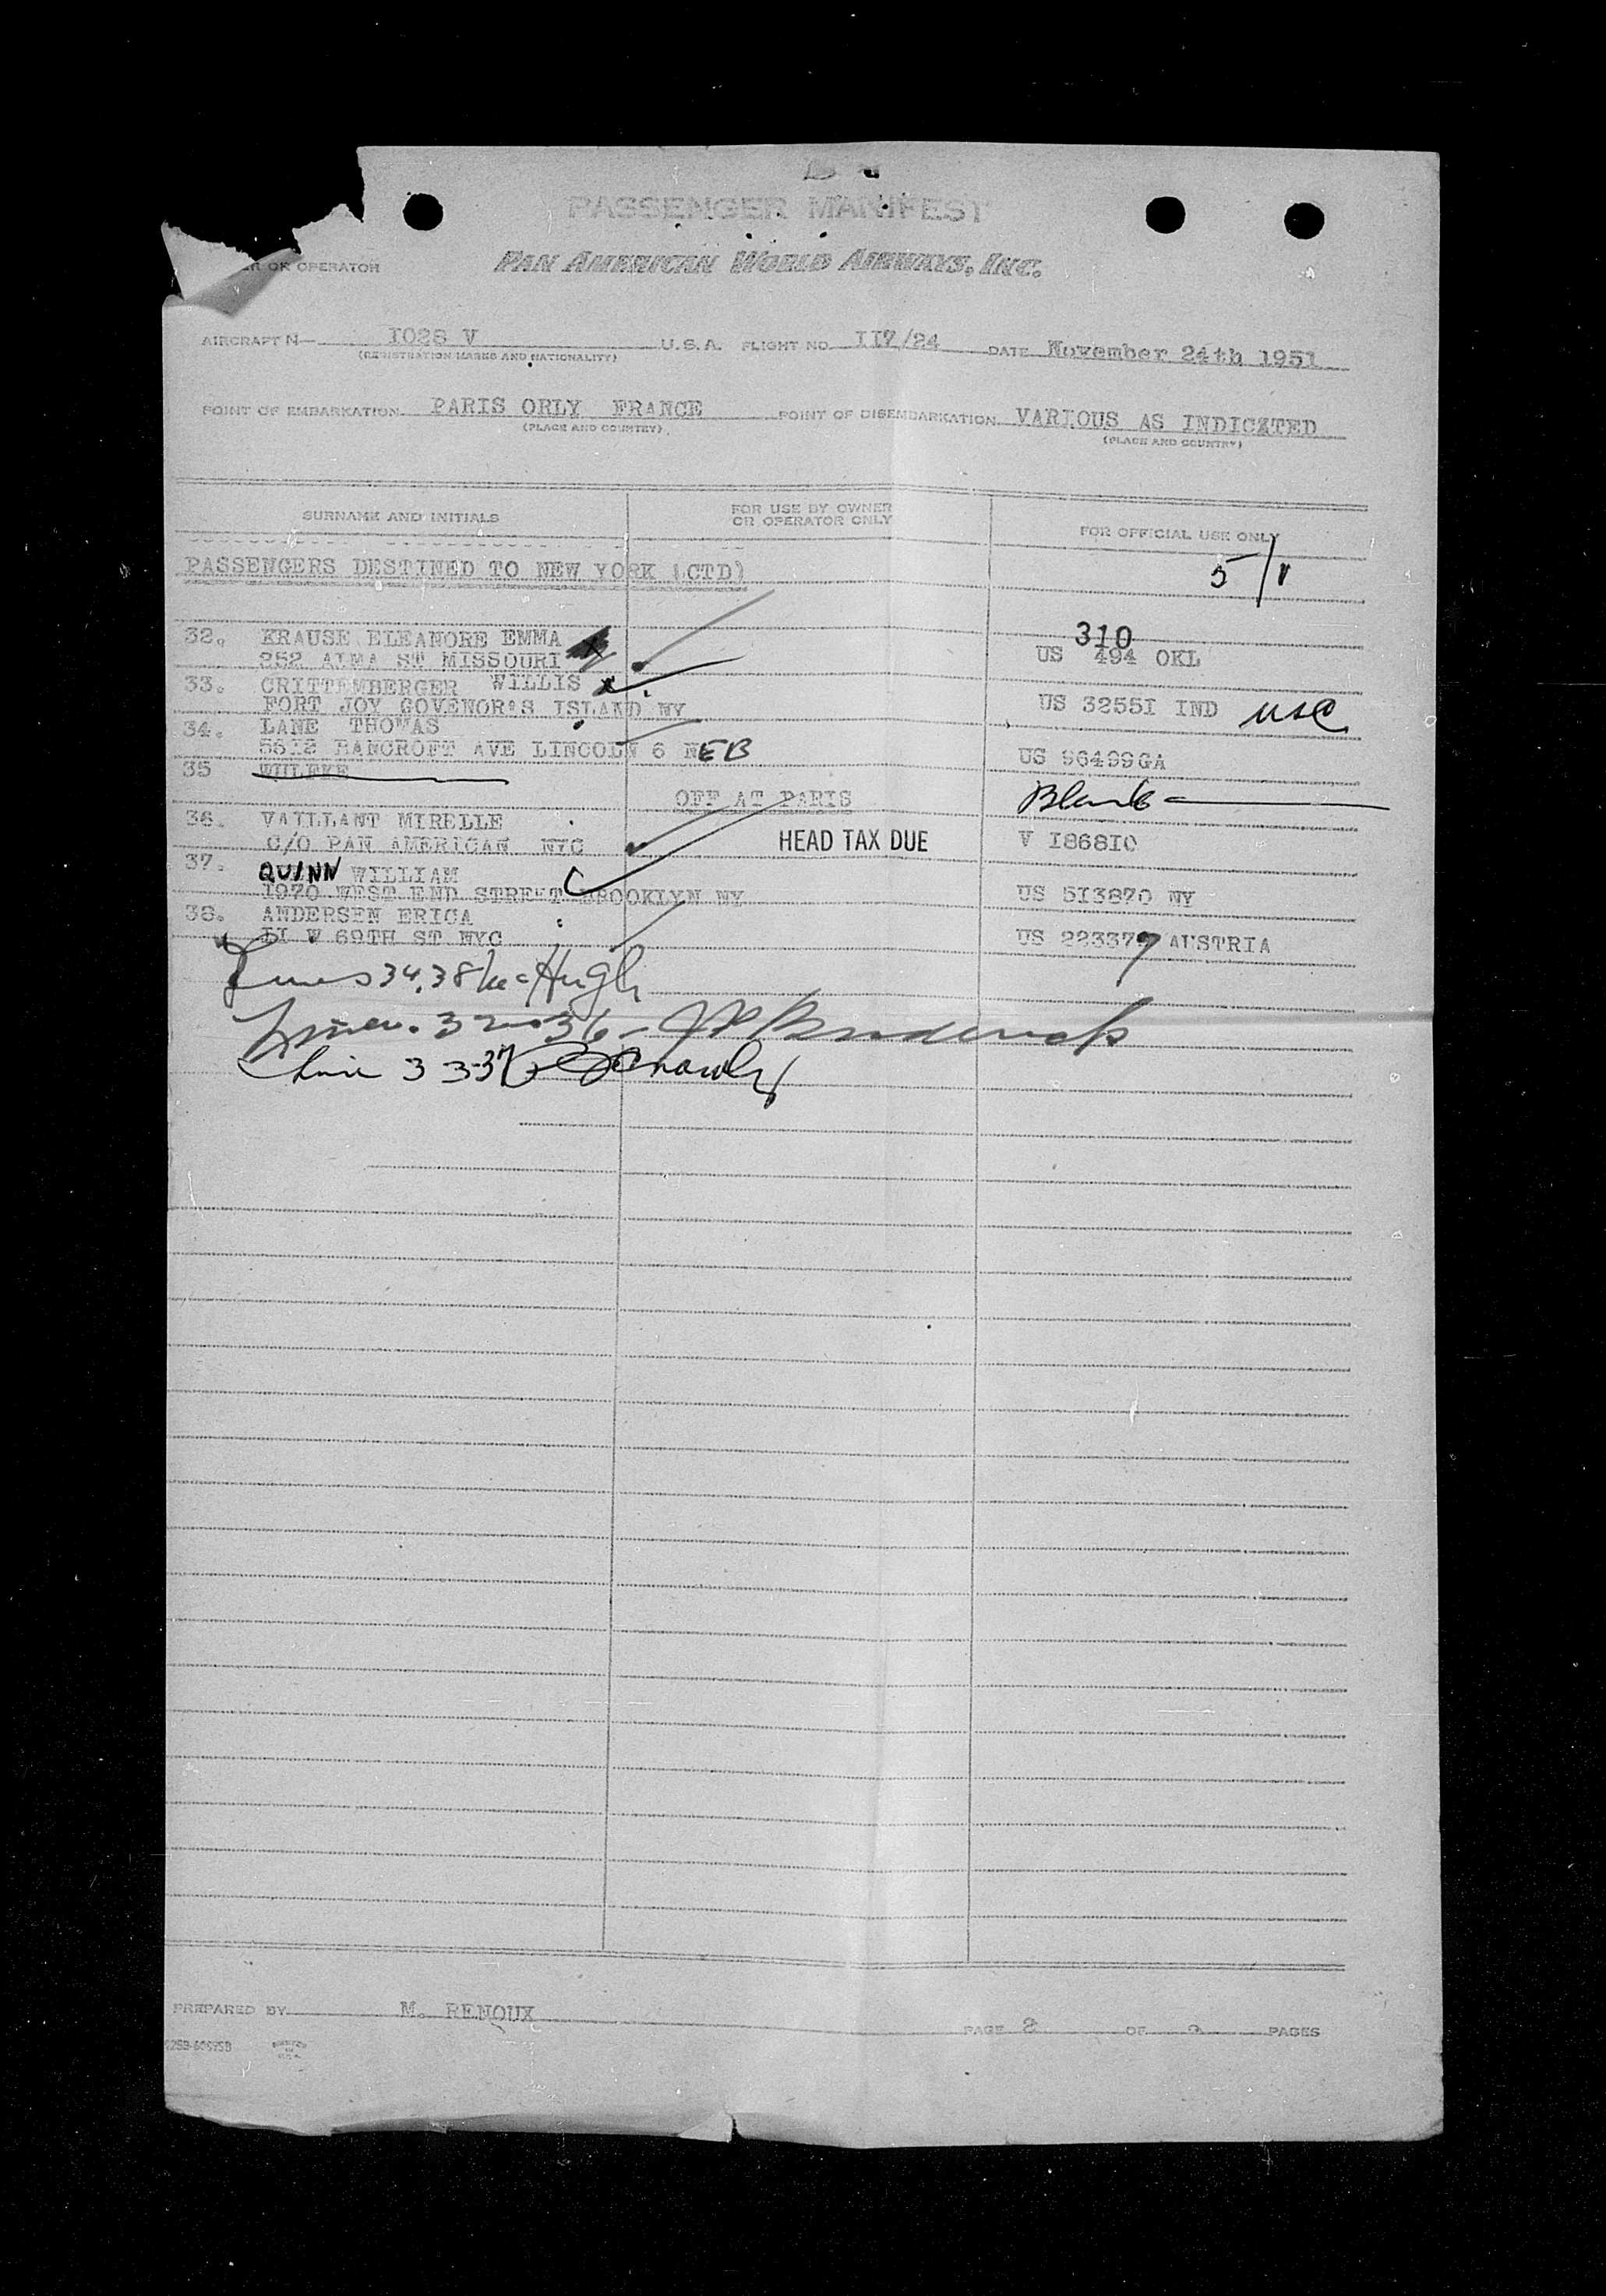 PASSENGER MANIFEST
OR OPERATOR PAN AMERICAN WORLD AIRWAYS, INC.
AIRCRAFT N- 1028 V U.S.A. FLIGHT NO. II7/24 DATE November 24th 1951
(REGISTRATION MARKS AND NATIONALITY)
POINT OF EMBARKATION PARIS ORLY FRANCE POINT OF DISEMBARKATION VARIOUS AS INDICATED
(PLACE AND COUNTRY) (PLACE AND COUNTRY)
SURNAME AND INITIALS FOR USE BY OWNER OR OPERATOR ONLY FOR OFFICIAL USE ONLY
PASSENGERS DESTINED TO NEW YORK (CTD) 5/1
32. KRAUSE ELEANORE EMMA 310
252 ALMA ST MISSOURI US 494 OKL
33. CRITTEMBERGER WILLIS
FORT JOY GOVENOR'S ISLAND NY US 3255I IND USC
34. LANE THOMAS
5612 BANCROFT AVE LINCOLN 6 NEB US 96499GA
35
OFF AT PARIS Blank
36. VAILLANT MIRELLE
C/O PAN AMERICAN NYC HEAD TAX DUE V I868IO
37. QUINN WILLIAM
1970 WEST END STREET BROOKLYN NY US 5I3870 NY
38. ANDERSEN ERICA
II W 69TH ST NYC US 223379 AUSTRIA
Lines 34,38 McHugh
Lines 32-36 - JP Broderick
Line 33-37
PREPARED BY M. RENOUX
PAGE 2 OF PAGES